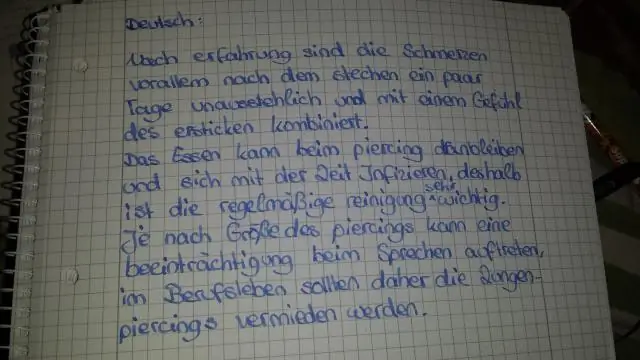 Deutsch:
Nach erfahrung sind die Schmerzen
vorallem nach dem stechen ein paar
Tage unausstehlich und mit einem Gefühl
des ersticken kombiniert.
Das Essen kann beim piercing dranbleiben
und sich mit der Zeit Infizieren, deshalb
ist die regelmäßige reinigung sehr wichtig.
Je nach Größe des piercings kann eine
beeinträchtigung beim Sprechen auftreten,
im Berufsleben sollten daher die Zungen-
piercings vermieden werden.